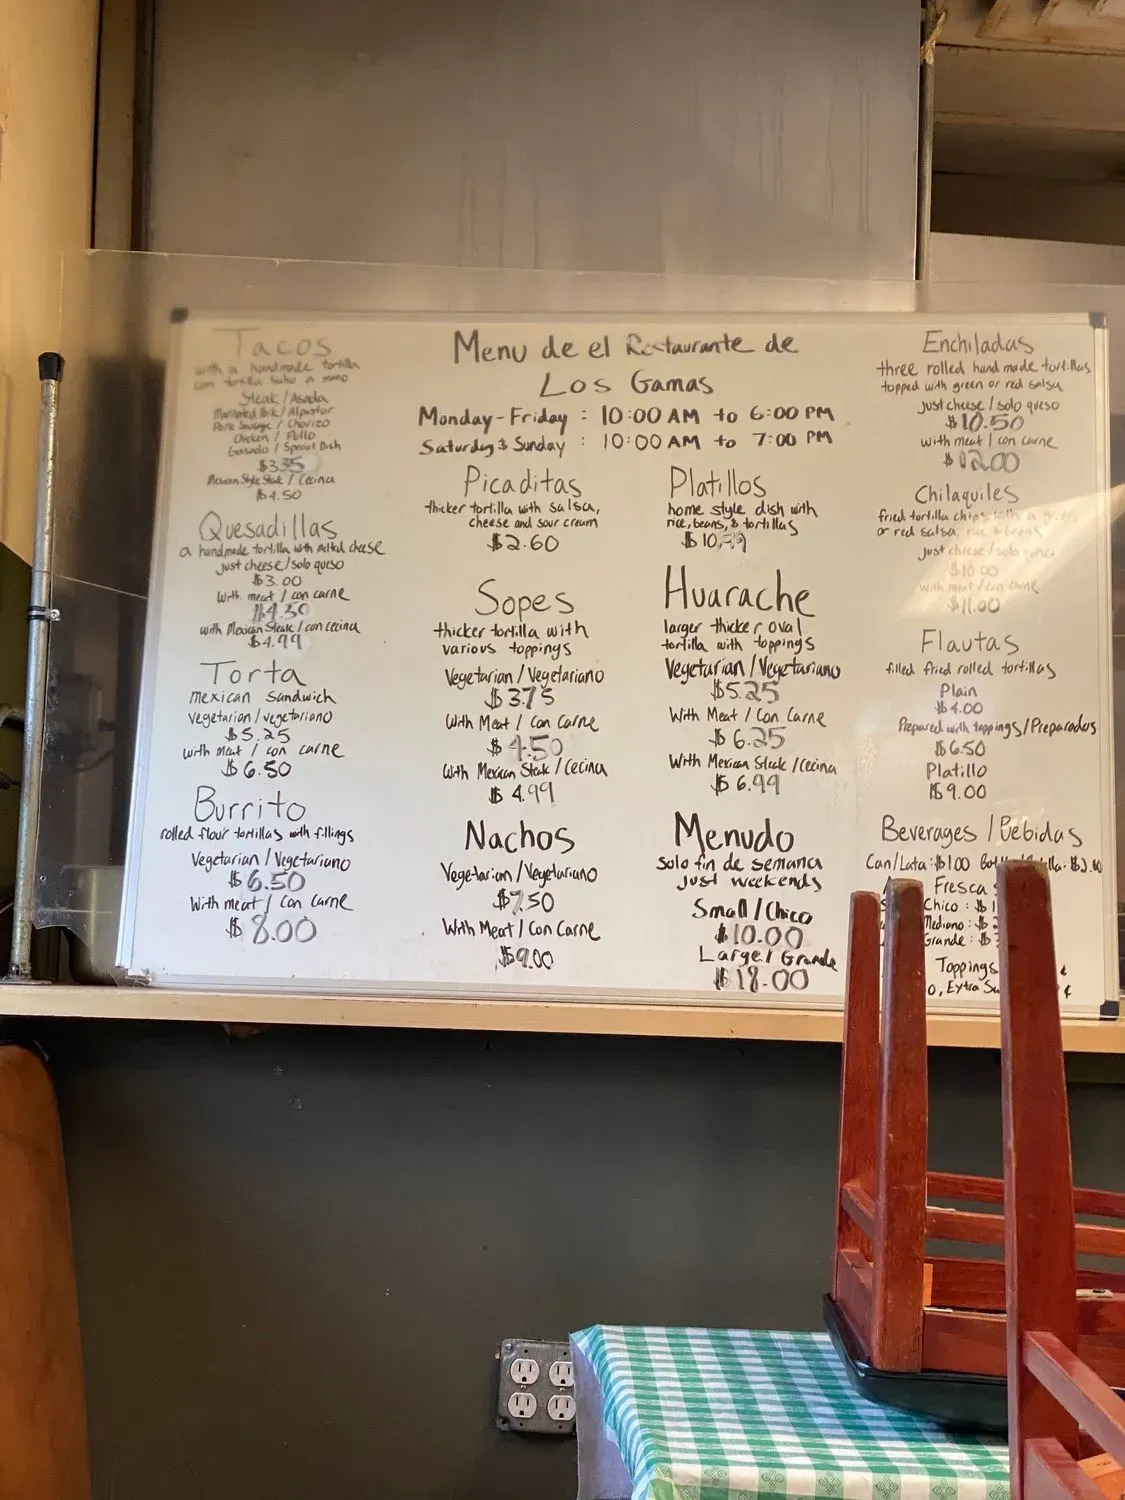 Tacos
with a handmade tortilla
con tortilla hecho a mano
Steak / Asada
Marinated Pork / Alpastor
Pork Sausage / Chorizo
Chicken / Pollo
Guisado / Special Dish
$3.35
Mexican Style Steak / Cecina
$4.50
Quesadillas
a handmade tortilla with melted cheese
just cheese / solo queso
$3.00
With meat / con carne
$4.50
with Mexican Steak / con cecina
$4.99
Torta
mexican sandwich
vegetarian / vegetariano
$5.25
with meat / con carne
$6.50
Burrito
rolled flour tortillas with fillings
Vegetarian / Vegetariano
$6.50
With meat / Con carne
$8.00
Menu de el Restaurante de
Los Gamas
Monday-Friday : 10:00 AM to 6:00 PM
Saturday & Sunday : 10:00 AM to 7:00 PM
Picaditas
thicker tortilla with salsa,
cheese and sour cream
$2.60
Sopes
thicker tortilla with
various toppings
Vegetarian / Vegetariano
$3.75
With Meat / Con Carne
$4.50
With Mexican Steak / Cecina
$4.99
Nachos
Vegetarian / Vegetariano
$7.50
With Meat / Con Carne
$9.00
Platillos
home style dish with
rice, beans, & tortillas
$10.99
Huarache
larger thicker oval
tortilla with toppings
Vegetarian / Vegetariano
$5.25
With Meat / Con Carne
$6.25
With Mexican Steak / Cecina
$6.99
Menudo
Solo fin de semana
Just weekends
Small / Chico
$10.00
Large / Grande
$18.00
Enchiladas
three rolled hand made tortillas
topped with green or red salsa
just cheese / solo queso
$10.50
with meat / con carne
$12.00
Chilaquiles
fried tortilla chips with a green
or red salsa, rice & beans
just cheese / solo queso
$10.00
with meat / con carne
$11.00
Flautas
filled fried rolled tortillas
Plain
$4.00
Prepared with toppings / Preparadas
$6.50
Platillo
$9.00
Beverages / Bebidas
Can/Lata: $1.00 $2.00
Fresca
Chico : $
Mediano : $
Grande : $
Toppings
Extra